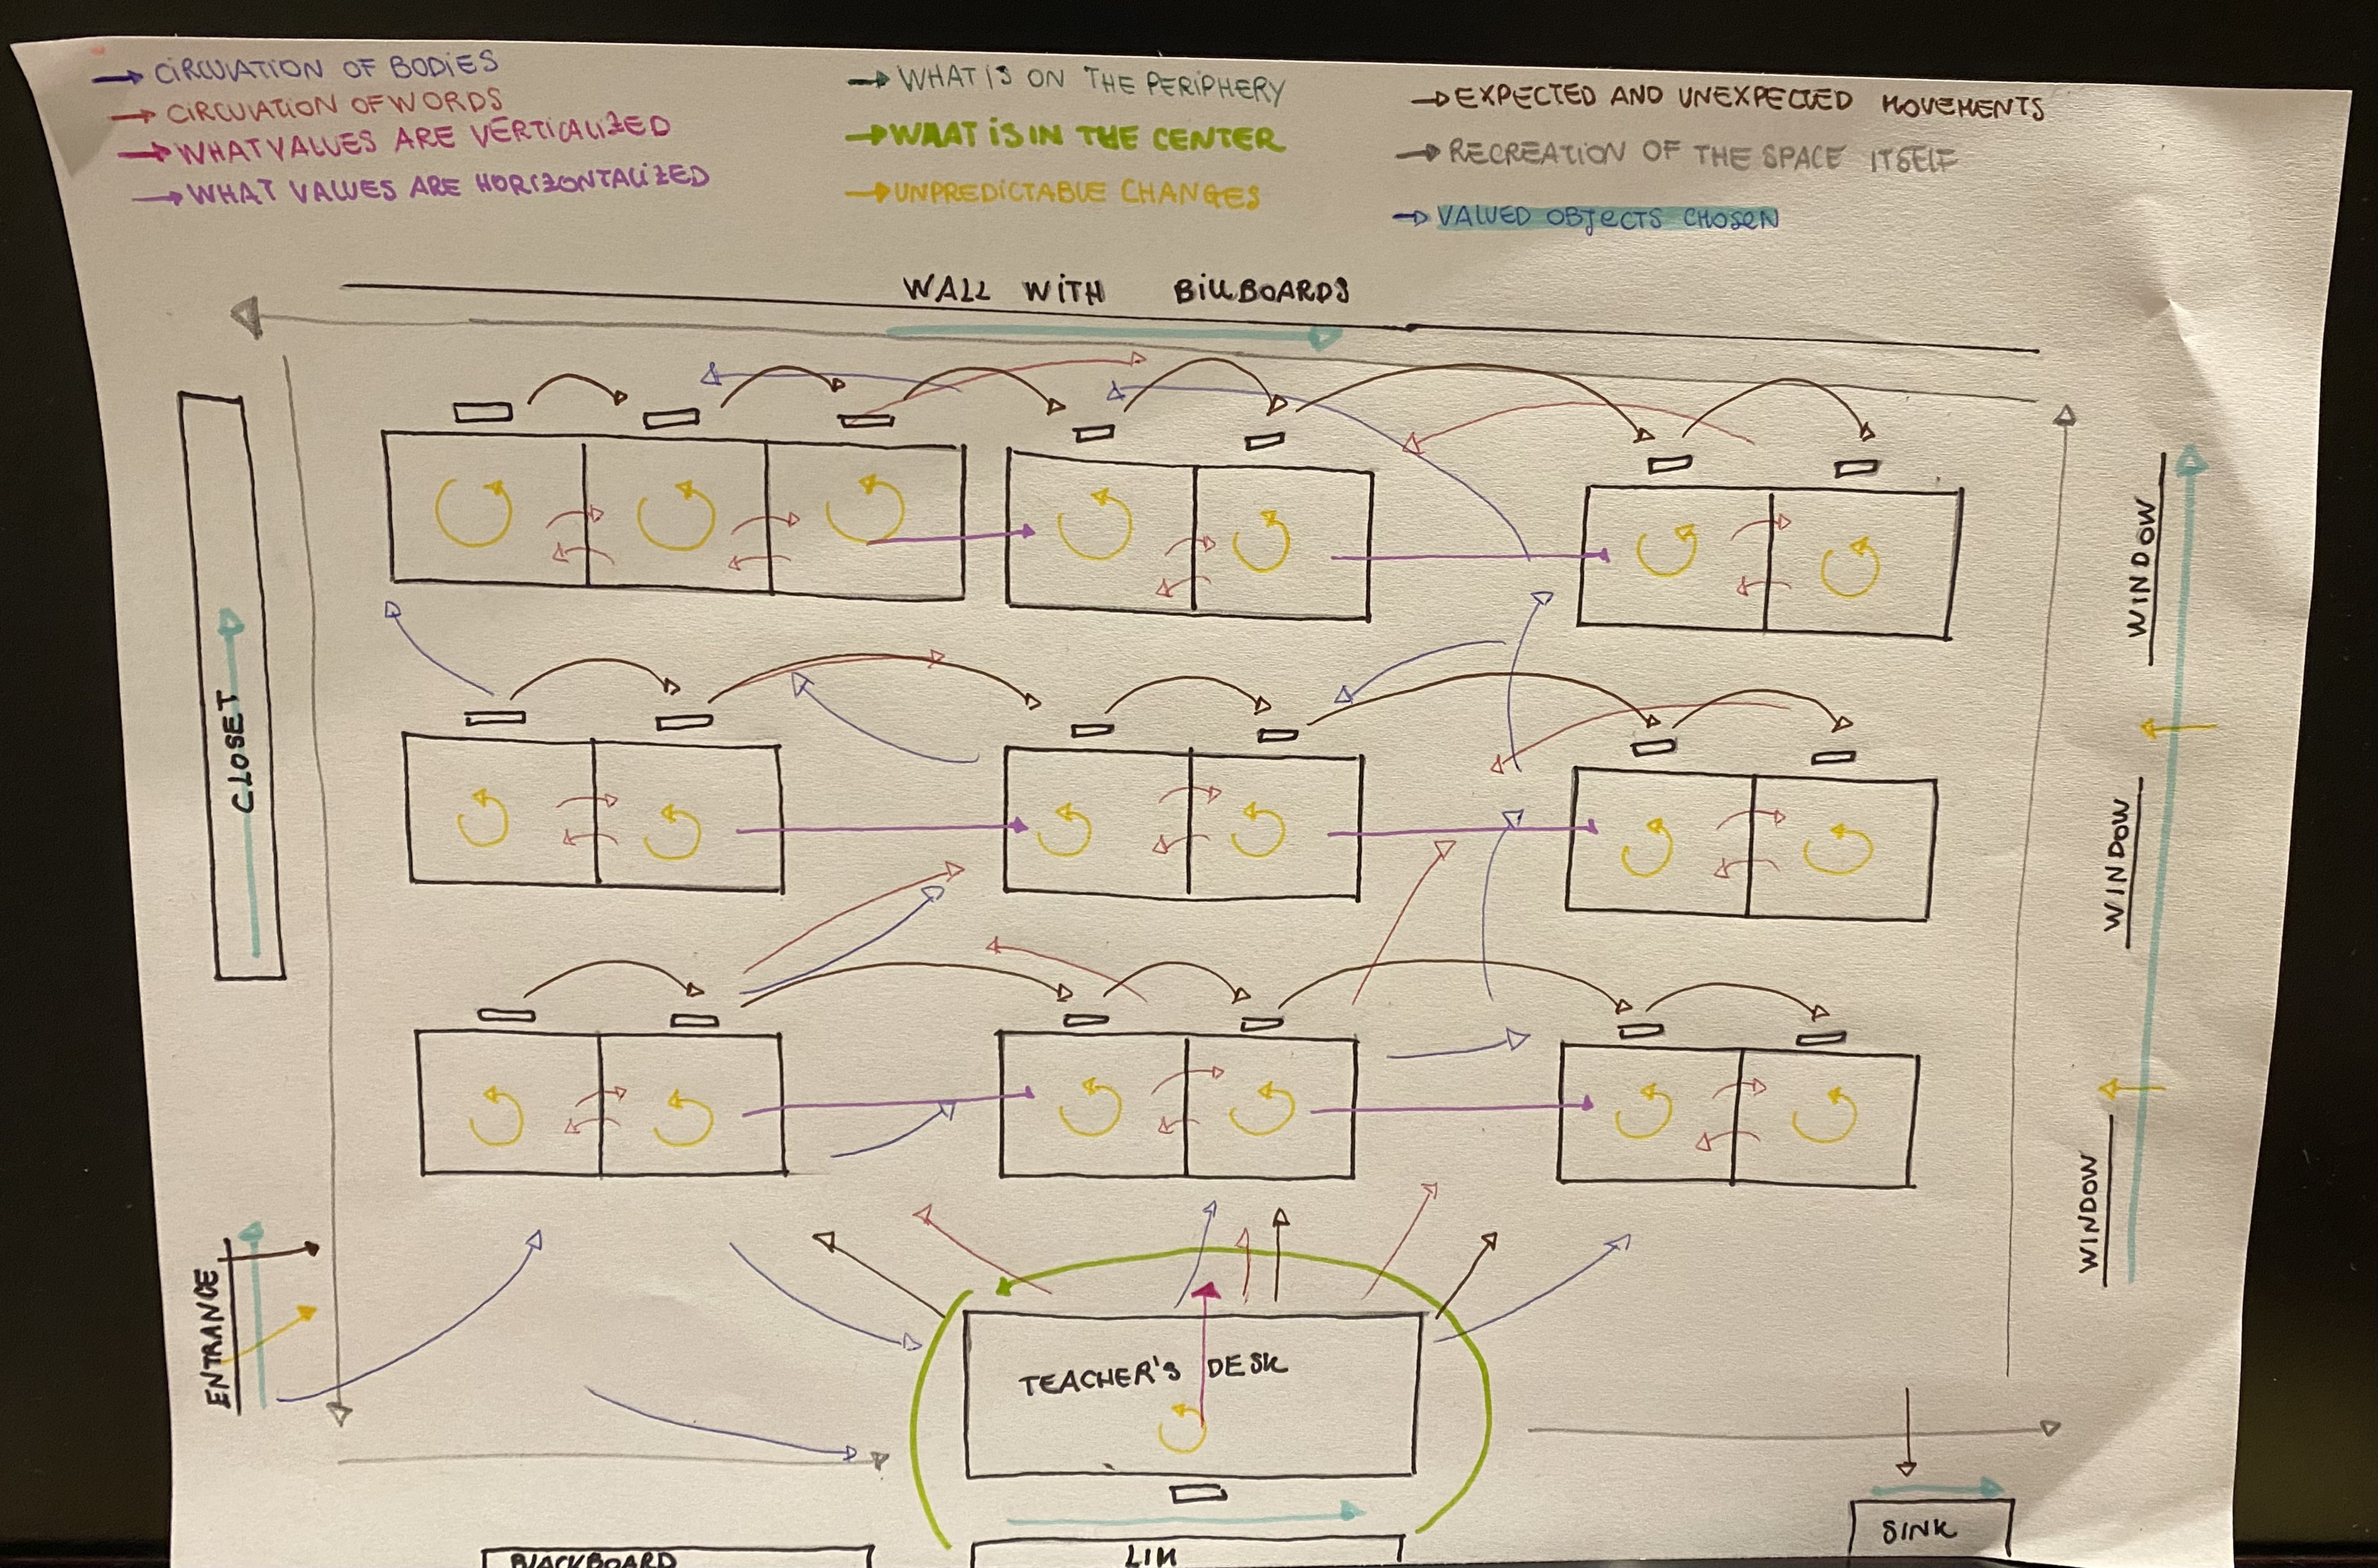 → CIRCULATION OF BODIES
→ CIRCULATION OF WORDS
→ WHAT VALUES ARE VERTICALIZED
→ WHAT VALUES ARE HORIZONTALIZED
→ WHAT IS ON THE PERIPHERY
→ WAAT IS IN THE CENTER
→ UNPREDICTABLE CHANGES
→ EXPECTED AND UNEXPECTED MOVEMENTS
→ RECREATION OF THE SPACE ITSELF
→ VALUED OBJECTS CHOSEN
WALL WITH BILLBOARDS
CLOSET
WINDOW
WINDOW
WINDOW
ENTRANCE
TEACHER'S DESK
SINK
BLACKBOARD
LIM